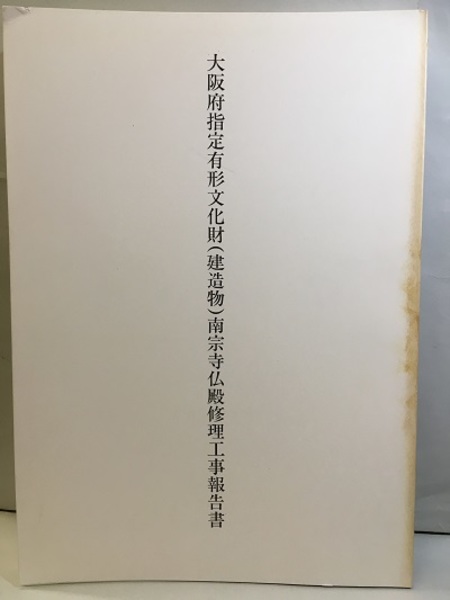 大阪府指定有形文化財(建造物)南宗寺仏殿修理工事報告書